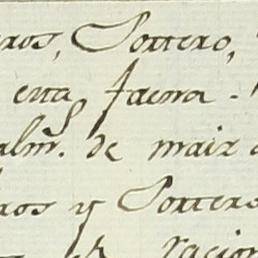 ros, Portero,
esta faena.
alm^r. de maiz
ros y Portero
racion